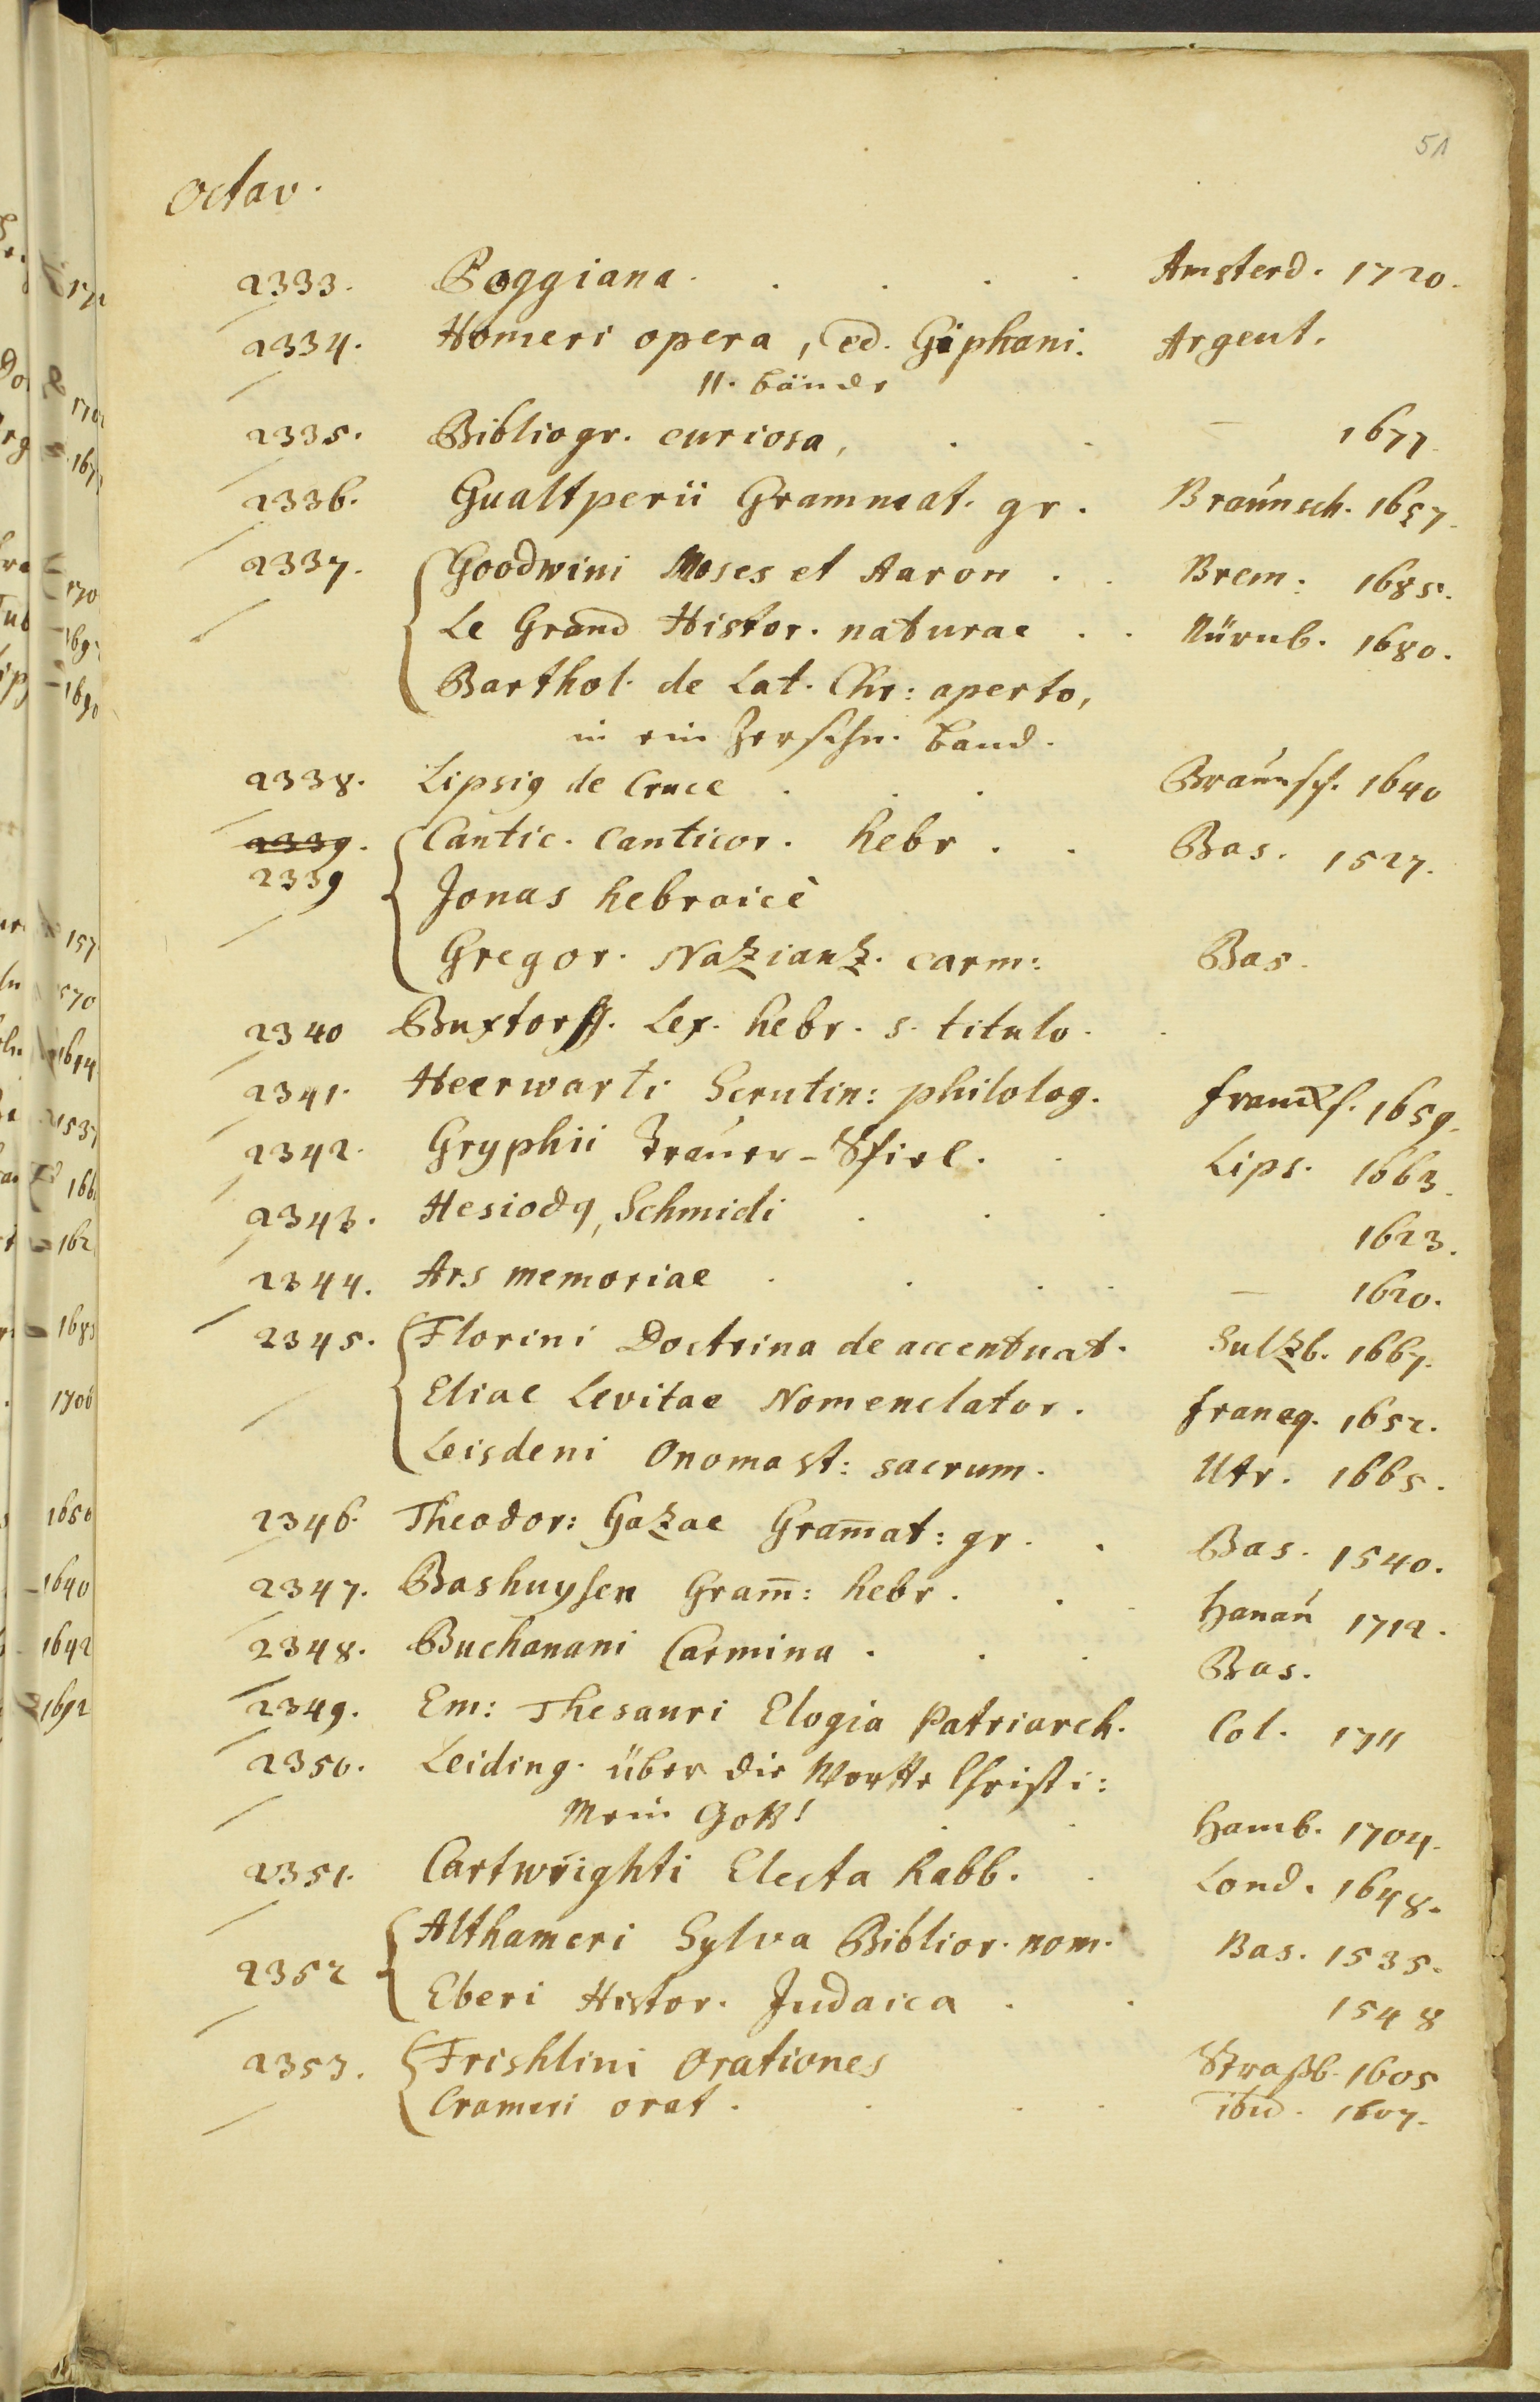 51
Octav.
2333. Poggiana. Amsterd. 1720.
2334. Homeri opera, ed. Giphani. Argent.
II. bände
2335. Bibliogr. curiosa, — 1677.
2336. Gualtperii Grammat. gr. Braunsch. 1657.
2337. Goodwini Moses et Aaron . . Brem: 1685.
Le Grand Histor. naturae . . Nürnb. 1680.
Barthol. de Lat. Chr: aperto,
in ein Band.
2338. Lipsig de Cruce . . . Braunsch. 1640
2339. Cantic. Canticor. hebr . . Bas. 1527.
2339 Jonas hebraicè
Gregor. Nazianz. carm: Bas.
2340 Buxtorff. Lex. hebr. s. titulo.
2341. Heerwarti Scrutin: philolog. Franckf. 1659.
2342. Gryphii Trauer-Spiel. Lips. 1663.
2343. Hesiodq, Schmidi . . . 1623.
2344. Ars memoriae . . . — 1620.
2345. Florini Doctrina de accentuat. Sulzb. 1667.
Eliae Levitae Nomenclator. Franeq. 1652.
Leisdeni Onomast: sacrum. Utr. 1665.
2346. Theodor: Gazae Gram̄at: gr. . Bas. 1540.
2347. Bashuysen Gram̄: hebr. . Hanau 1712.
2348. Buchanani Carmina . . . Bas.
2349. Em: Thesauri Elogia Patriarch. Col. 1711
2350. Leiding. über die Wortte Christi:
Mein Gott! . . Hamb. 1704.
2351. Cartwrighti Electa Rabb. . Lond. 1648.
2352 Althameri Sylva Biblior. nom. Bas. 1535.
Eberi Histor. Judaica . . 1548
2353. Frishlini Orationes Straßb. 1605
Crameri orat. . . . ibid. 1607.